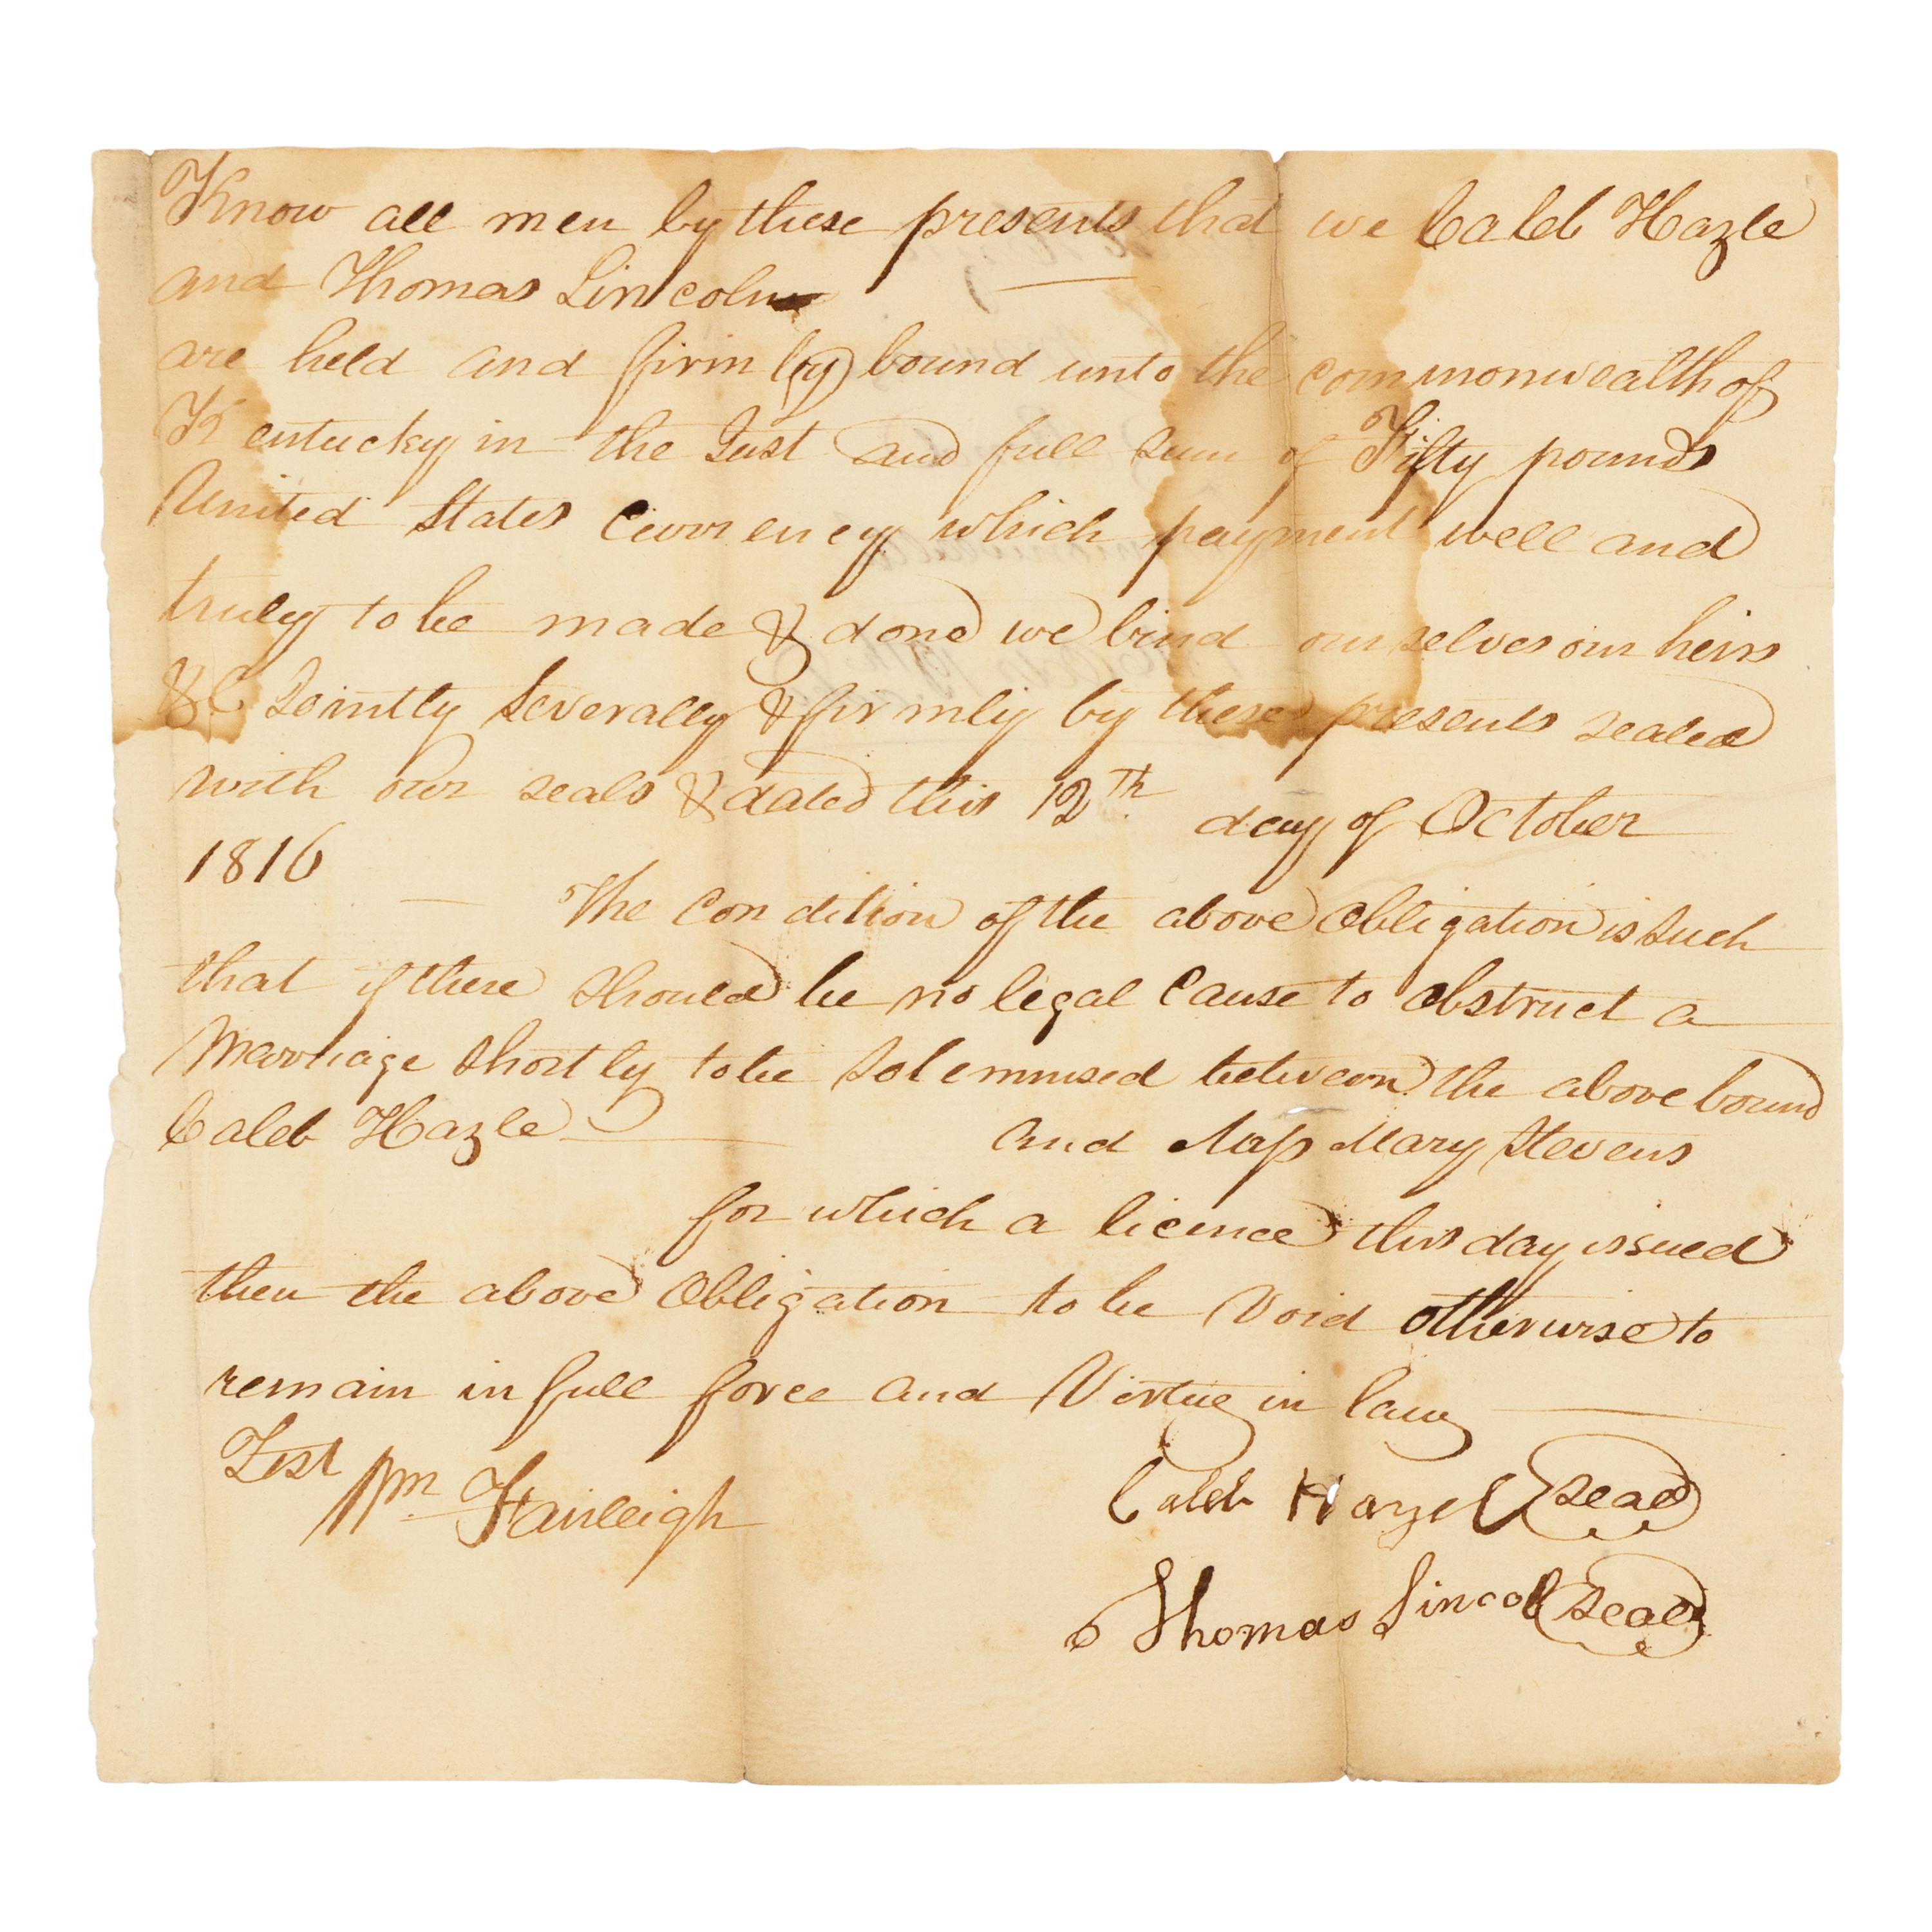 Know all men by these presents that we Caleb Hazle
and Thomas Lincoln
are held and firmly bound unto the commonwealth of
Kentucky in the Just and full sum of Fifty pounds
United States Currency which payment well and
truly to be made & done we bind ourselves our heirs
&C Jointly Severally & firmly by these presents sealed
with our seals & dated this 12th day of October
1816
The Condition of the above Obligation is Such
that if there should be no legal Cause to obstruct a
Marriage shortly to be Solemnised between the above bound
Caleb Hazle and Miss Mary Stevens
for which a licence this day issued
then the above Obligation to be Void otherwise to
remain in full force and Virtue in law
Test
Wm Fairleigh
Caleb Hazel Seal
Thomas Lincol Seal